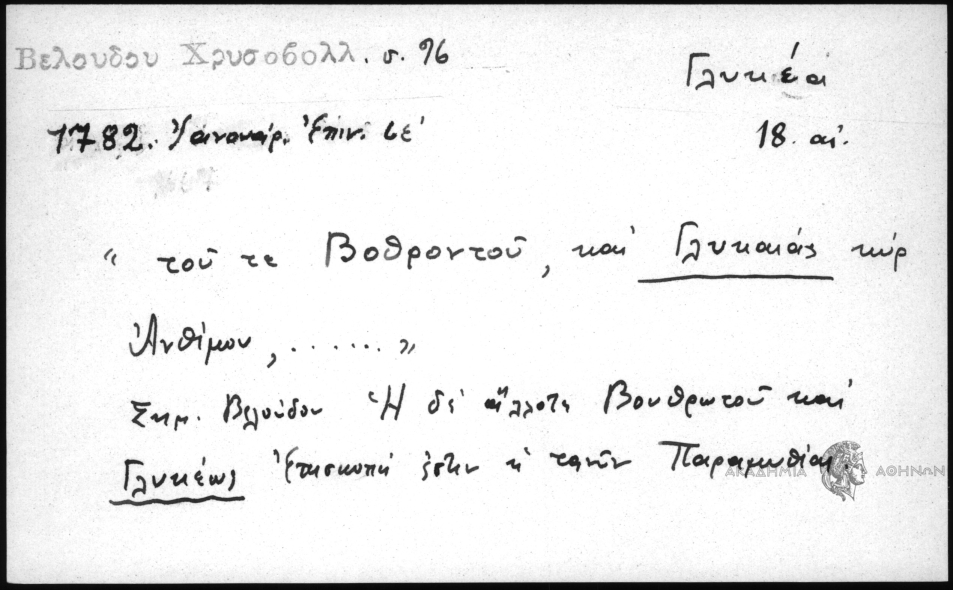 Βελουδου Χρυσοβολλ. σ. 96
Γλυκέα
1782. Ἰαννουάρ. Ἐπιν. ιε΄
18. αἰ.
“ τοῦ τε Βοθροντοῦ, καὶ Γλυκαιάς κύρ
Ἀνθίμου, ...... ”
Σημ. Βελούδου Ἡ δὲ ἄλλοτε Βουθρωτοῦ καὶ
Γλυκέως Ἐπισκοπή ἐστιν ἡ τανῦν Παραμυθίας.
ΑΚΑΔΗΜΙΑ ΑΘΗΝΩΝ